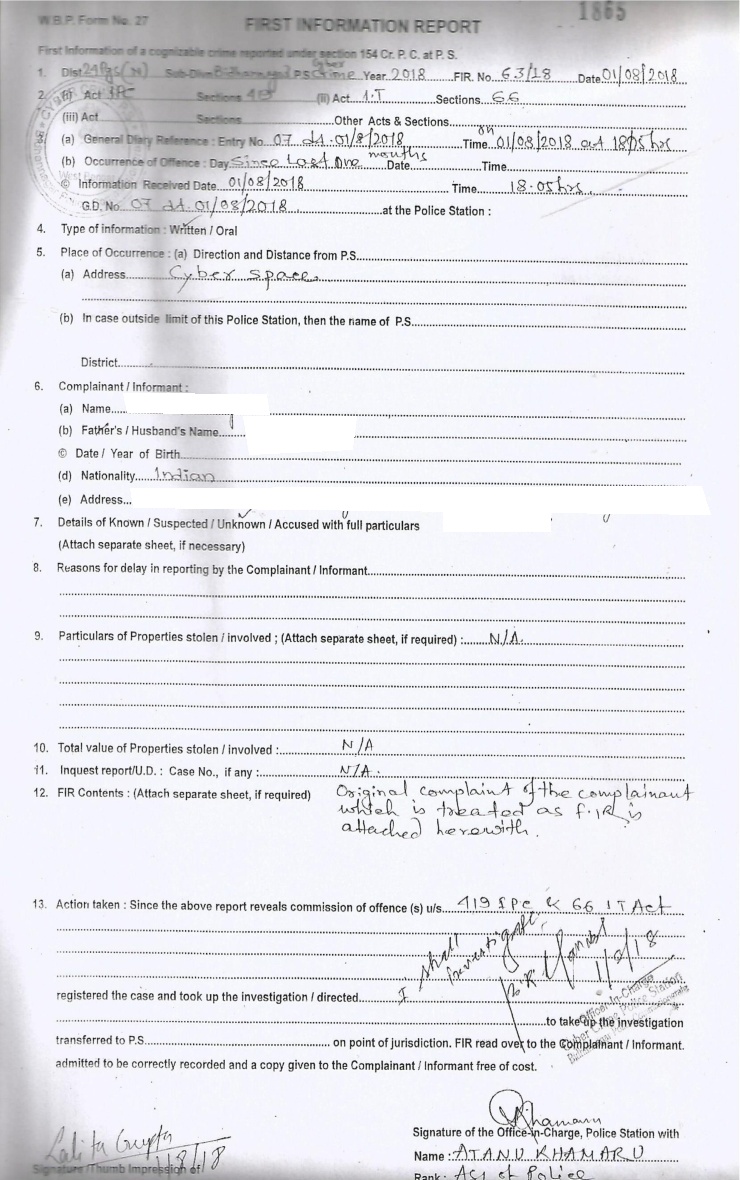 1865
W.B.P. Form No. 27
FIRST INFORMATION REPORT
First Information of a cognizable crime reported under section 154 Cr. P. C. at P. S.
1. Dist 24 Pgs (N) Sub-Divn P.S. Cyber Crime Year 2018 FIR. No. 63/18 Date 01/08/2018
2. (i) Act IPC Sections 419 (ii) Act I.T Sections 66
(iii) Act Sections Other Acts & Sections
(a) General Diary Reference : Entry No. 07 dt. 01/8/2018 Time on 01/08/2018 at 1805 hrs
(b) Occurrence of Offence : Day Since Last One months Date Time
© Information Received Date 01/08/2018 Time 18.05 hrs.
G.D. No. 07 dt. 01/08/2018 at the Police Station :
4. Type of information : Written / Oral
5. Place of Occurrence : (a) Direction and Distance from P.S.
(a) Address Cyber space.
(b) In case outside limit of this Police Station, then the name of P.S.
District
6. Complainant / Informant :
(a) Name
(b) Father's / Husband's Name
© Date / Year of Birth
(d) Nationality Indian
(e) Address
7. Details of Known / Suspected / Unknown / Accused with full particulars
(Attach separate sheet, if necessary)
8. Reasons for delay in reporting by the Complainant / Informant
9. Particulars of Properties stolen / involved ; (Attach separate sheet, if required) : N/A.
10. Total value of Properties stolen / involved : N/A
11. Inquest report/U.D. : Case No., if any : N/A.
12. FIR Contents : (Attach separate sheet, if required) Original complaint of the complainant
which is treated as F.IR is
attached herewith.
13. Action taken : Since the above report reveals commission of offence (s) u/s. 419 IPC & 66 IT Act
I shall
investigate
1/8/18
registered the case and took up the investigation / directed
Officer-In-Charge
Cyber Crime Police Station
to take up the investigation
transferred to P.S. on point of jurisdiction. FIR read over to the Complainant / Informant.
admitted to be correctly recorded and a copy given to the Complainant / Informant free of cost.
Signature of the Office-in-Charge, Police Station with
Lalita Gupta
1/8/18
Name : ATANU KHAMARU
Signature/Thumb Impression of
Rank : ACI of Police